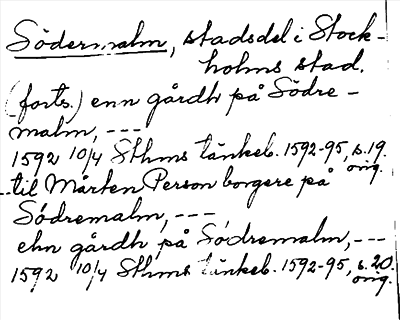 Södermalm, stadsdel i Stock-
holms stad.
(forts.) enn gårdh på Södre-
malm, ---
1592 10/4 Sthms tänkeb. 1592-95, s.19.
orig.
..til Mårten Person borgere på
Södremalm, ---
ehn gårdh på Södremalm, ---
1592 10/4 Sthms tänkeb. 1592-95, s.20.
orig.